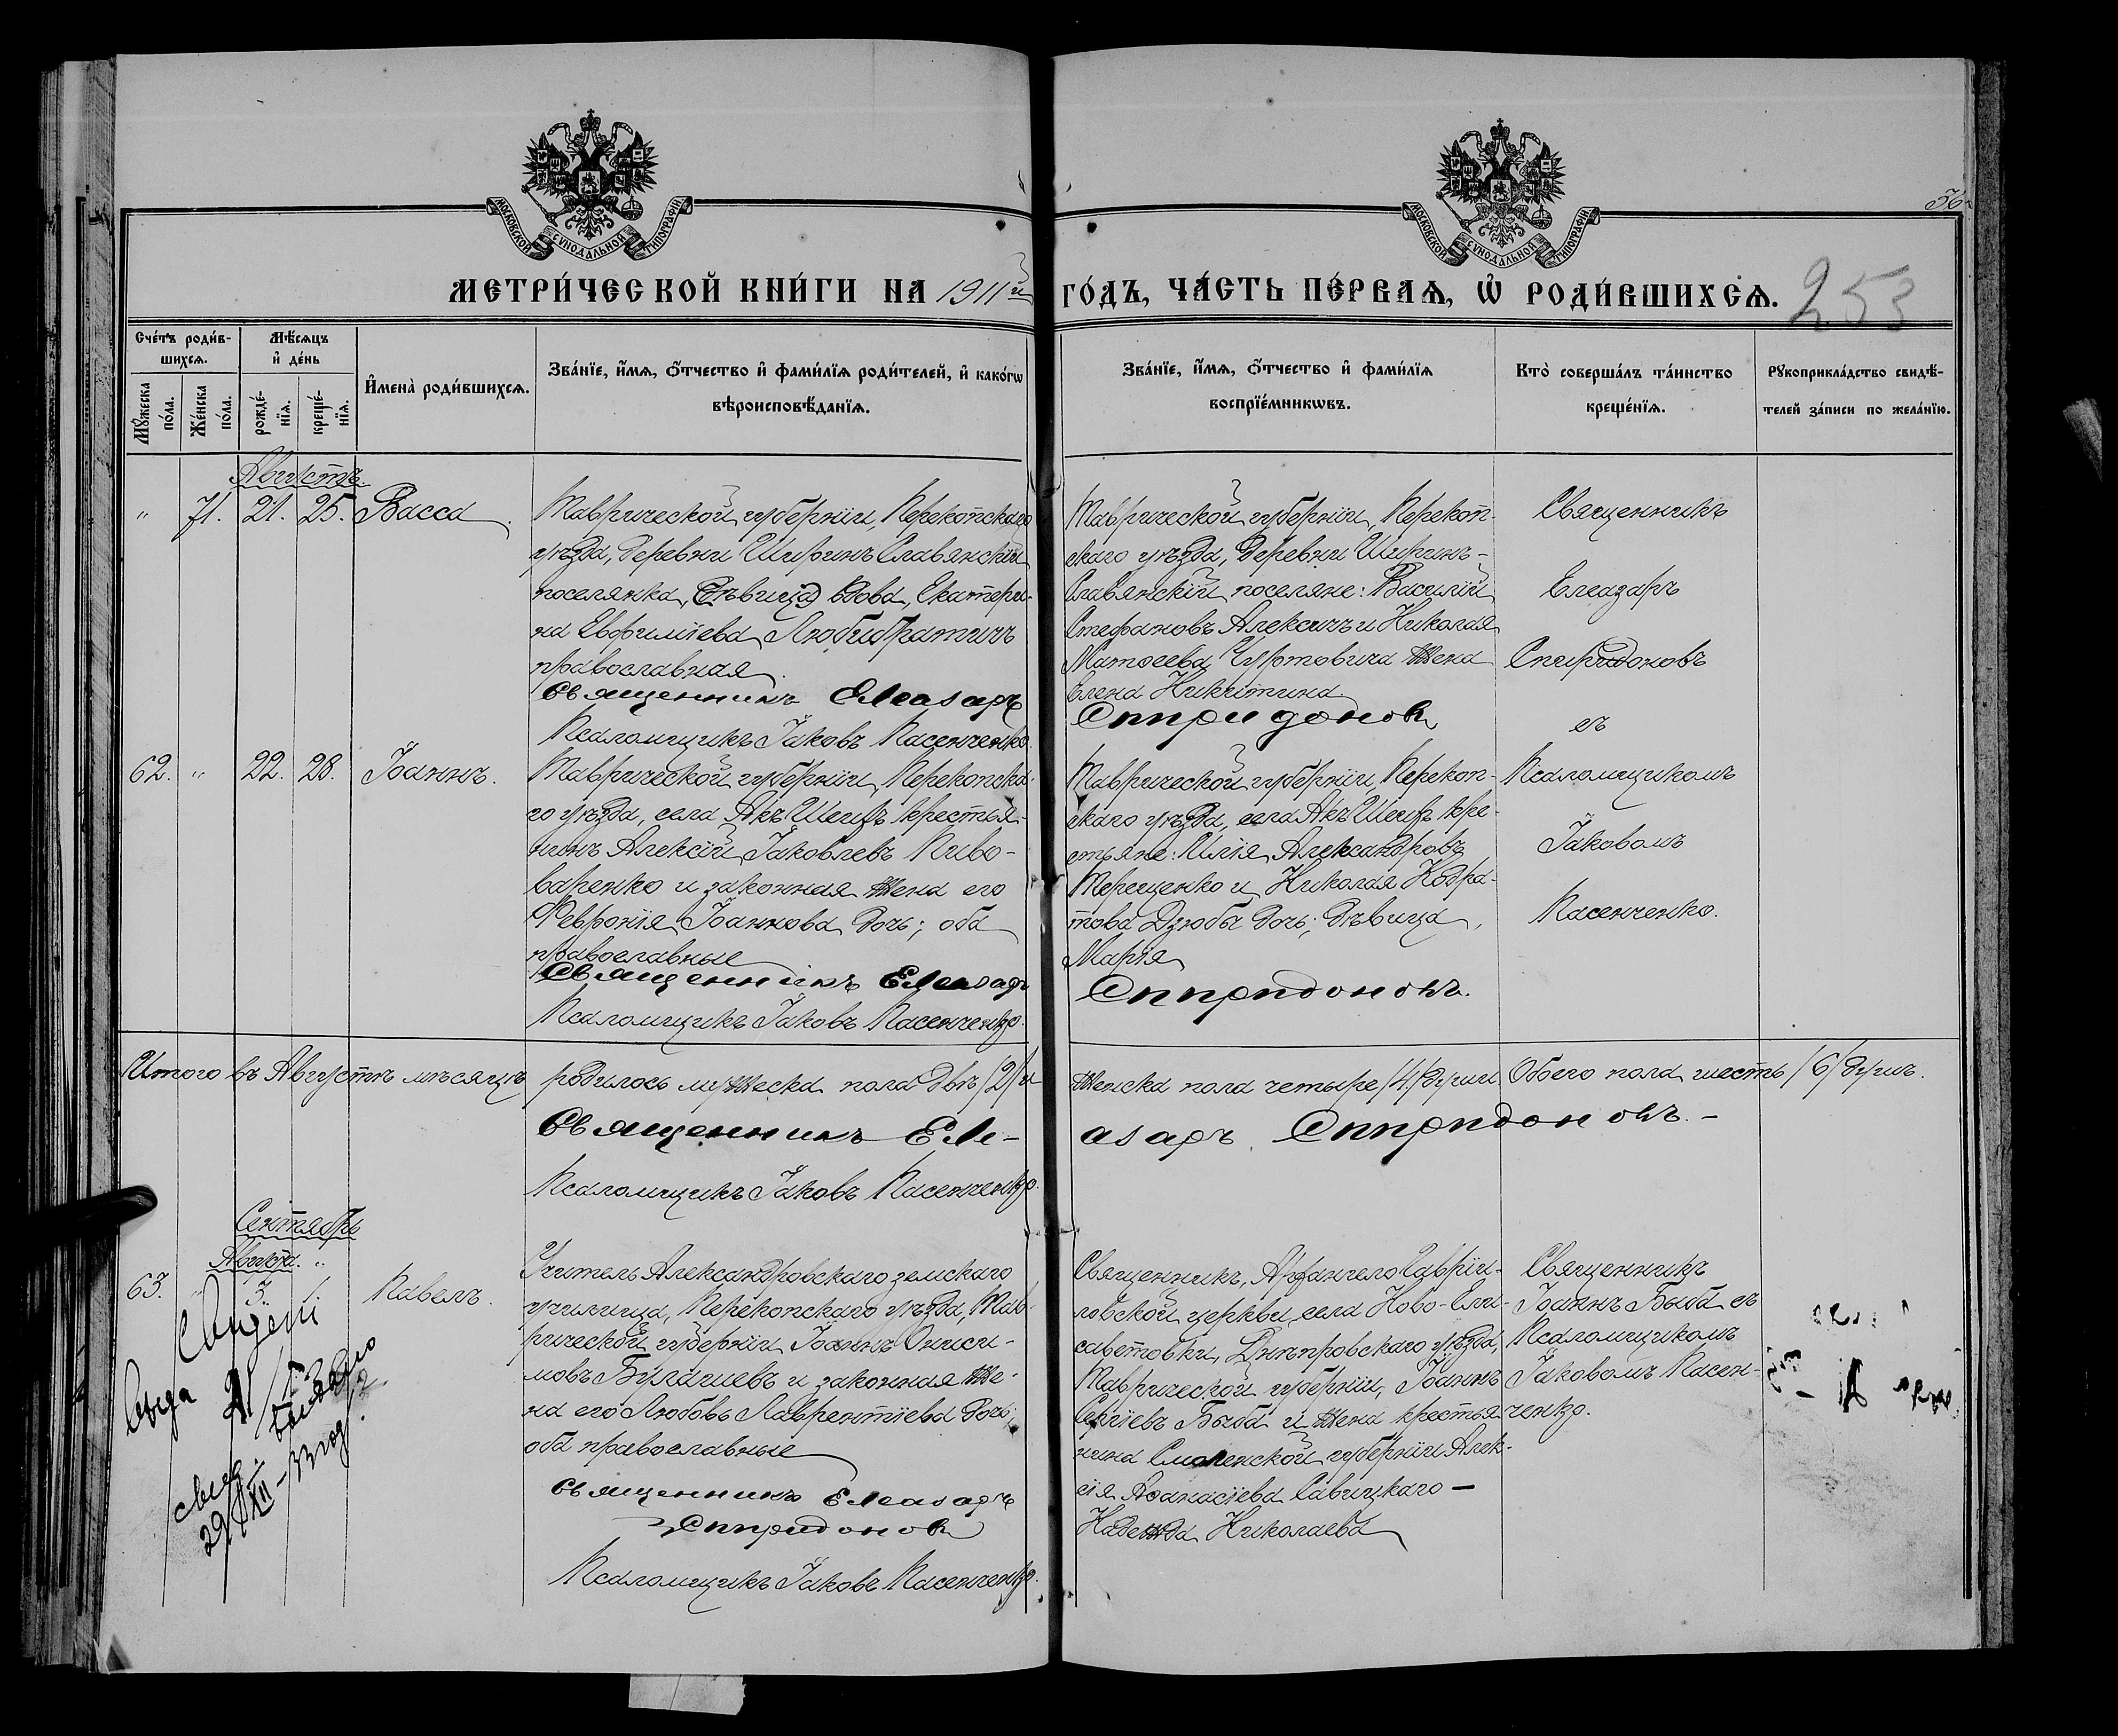 МОСКОВСКОЙ СѴНОДАЛЬНОЙ ТИПОГРАФІИ
МОСКОВСКОЙ СѴНОДАЛЬНОЙ ТИПОГРАФІИ
36
МЕТРИ́ЧЕСКОЙ КНИ́ГИ НА 1911й ГО́ДЪ, ЧА́СТЬ ПЕ́РВАѦ, Ѽ РОДИ́ВШИХСѦ.
253
Сче́тъ роди́в-
шихсѧ.
Мѣ́сѧцъ
и҆ де́нь
Мꙋ́жеска
по́ла.
Же́нска
по́ла.
рожде́-
нїѧ.
креще́-
нїѧ.
И҆мена̀ роди́вшихсѧ.
Зва́нїе, и҆́мѧ, ѻ҆́тчество и҆ фами́лїѧ роди́телей, и҆ како́гѡ
вѣроисповѣ́данїѧ.
Зва́нїе, и҆́мѧ, ѻ҆́тчество и҆ фами́лїѧ
воспрїе́мникѡвъ.
Кто̀ соверша́лъ та́инство
креще́нїѧ.
Рꙋкоприкла́дство свидѣ́-
телей за́писи по жела́нїю.
Августъ.
" 71. 21. 25. Васса
Таврической губерніи, Перекопскаго
уѣзда, деревни Ширинъ Славянскій
поселянка, (дѣвица) вдова, Екатери-
на Евфиміева Любибратичъ
православная.
Священникъ Елеазаръ
Псаломщикъ Іаковъ Пасенченко.
Таврической губерніи, Перекоп-
скаго уѣзда, деревни Ширинъ-
Славянскій поселяне: Василій
Стефановъ Алексичъ и Николая
Матѳеева Чуртовича жена
Елена Никитина
Спиридоновъ
Священникъ
Елеазаръ
Спиридоновъ
съ
62. " 22. 28. Іоаннъ.
Таврической губерніи, Перекопска-
го уѣзда, села Акъ Шеихъ крестья-
нинъ Алексій Іаковлевъ Пиво-
варенко и законная жена его
Февронія Іоаннова дочь; оба
православные
Священникъ Елеазаръ
Псаломщикъ Іаковъ Пасенченко.
Таврической губерніи, Перекоп-
скаго уѣзда, села Акъ Шеихъ кре-
стьяне: Илія Александровъ
Терещенко и Николая Кодра-
това Дзюбы дочь; дѣвица,
Марія
Спиридоновъ.
Псаломщикомъ
Іаковомъ
Пасенченко.
Итого въ Августѣ мѣсяцѣ родилось мужеска пола двѣ /2/ и женска пола четыре /4/ души Обоего пола шесть /6/ душъ.
Священникъ Еле- азаръ Спиридоновъ.-
Псаломщикъ Іаковъ Пасенченко.
Сентябрь
Августа. "
63. " 3. Павелъ.
Учитель Александровскаго земскаго
училища, Перекопскаго уѣзда, Тав-
рической губерніи Іоаннъ Ониси-
мовъ Булашевъ и законная же-
на его Любовь Лаврентіева дочь;
оба православные
Священникъ Елеазаръ
Спиридоновъ
Псаломщикъ Іаковъ Пасенченко.
Священникъ, Архангело Гавріи-
ловской церкви села Ново-Ели-
саветовки, Днѣпровскаго уѣзда,
Таврической губерніи, Іоаннъ
Сергіевъ Быба и жена крестья
нина Смоленской губерніи Алек-
сія Аѳанасіева Савицкаго —
Надежда Николаева
Священникъ
Іоаннъ Быба съ
Псаломщикомъ
Іаковомъ Пасен-
ченко.